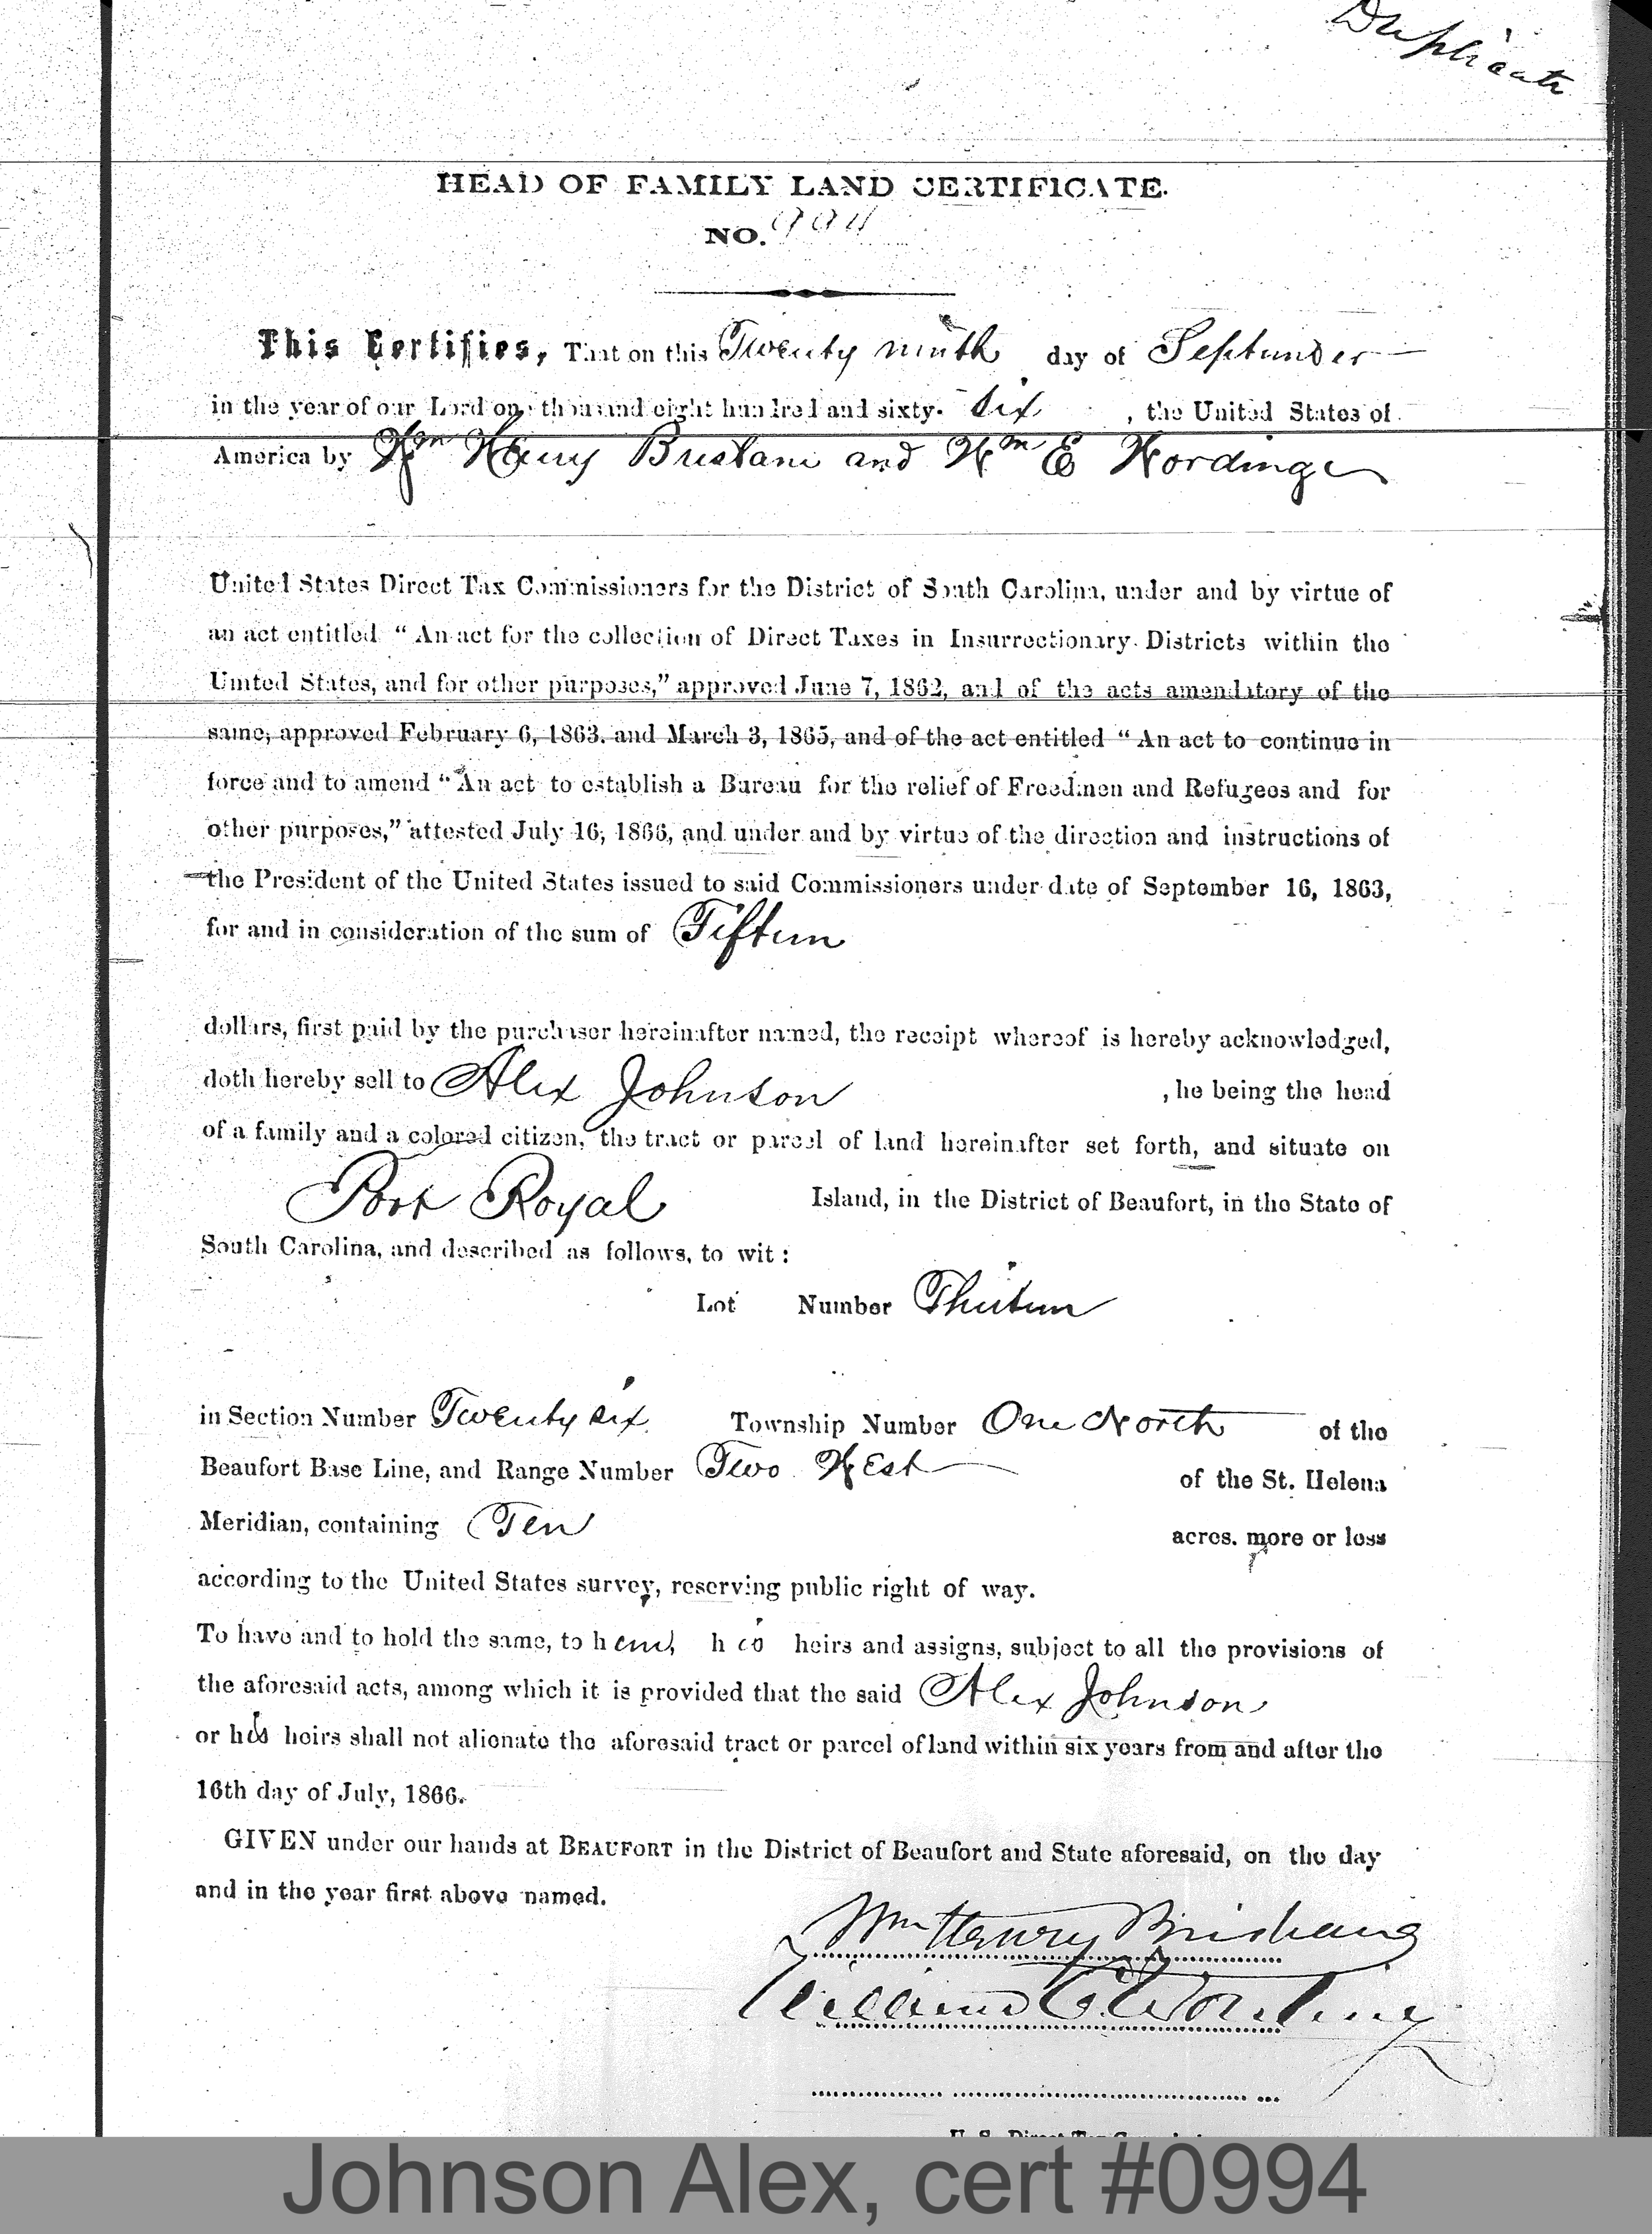 Duplicate
HEAD OF FAMILY LAND CERTIFICATE.
NO. 994
This Certifies, That on this Twenty ninth day of September
in the year of our Lord one thousand eight hundred and sixty- six , the United States of
America by Wm Henry Brisbane and Wm E Wording
United States Direct Tax Commissioners for the District of South Carolina, under and by virtue of
an act entitled “ An act for the collection of Direct Taxes in Insurrectionary Districts within the
United States, and for other purposes,” approved June 7, 1862, and of the acts amendatory of the
same, approved February 6, 1863. and March 3, 1865, and of the act entitled “ An act to continue in
force and to amend “ An act to establish a Bureau for the relief of Freedmen and Refugees and for
other purposes,” attested July 16, 1866, and under and by virtue of the direction and instructions of
the President of the United States issued to said Commissioners under date of September 16, 1863,
for and in consideration of the sum of Fifteen
dollars, first paid by the purchaser hereinafter named, the receipt whereof is hereby acknowledged,
doth hereby sell to Alex Johnson , he being the head
of a family and a colored citizen, the tract or parcel of land hereinafter set forth, and situate on
Port Royal Island, in the District of Beaufort, in the State of
South Carolina, and described as follows, to wit :
Lot Number Thirteen
in Section Number Twenty six Township Number One North of the
Beaufort Base Line, and Range Number Two West of the St. Helena
Meridian, containing Ten acres. more or less
according to the United States survey, reserving public right of way.
To have and to hold the same, to him, his heirs and assigns, subject to all the provisions of
the aforesaid acts, among which it is provided that the said Alex Johnson
or his heirs shall not alienate the aforesaid tract or parcel of land within six years from and after the
16th day of July, 1866.
GIVEN under our hands at BEAUFORT in the District of Beaufort and State aforesaid, on the day
and in the year first above named.
Wm Henry Brisbane
William E Wording
U. S. Direct Tax
Johnson Alex, cert #0994